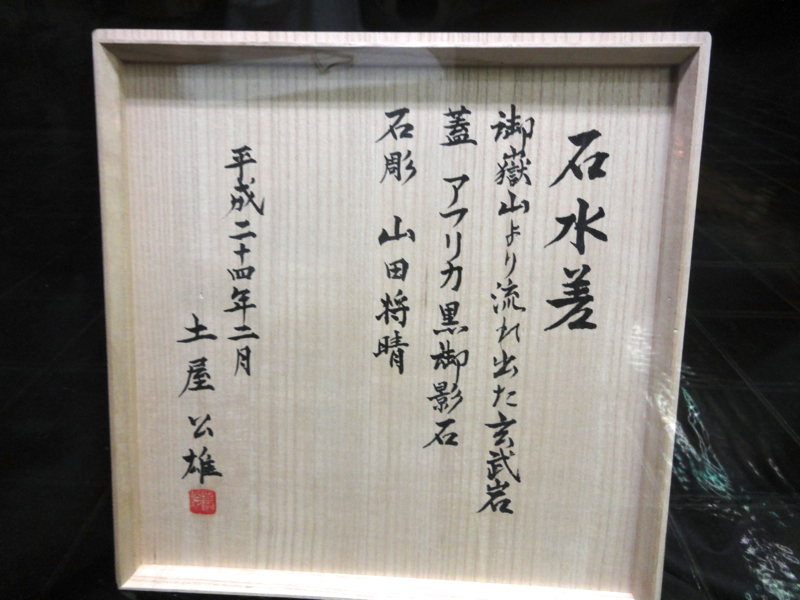 石水差
御嶽山より流れ出た玄武岩
蓋 アフリカ黒御影石
石彫 山田将晴
平成二十四年二月
土屋公雄